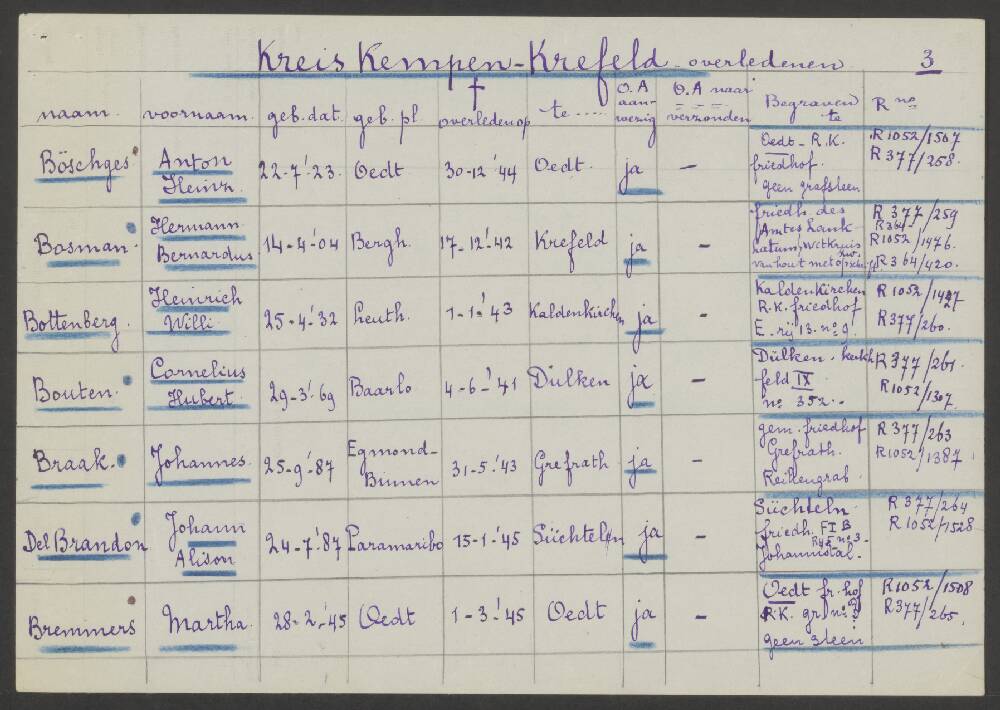 Kreis Kempen-Krefeld - overledenen 3
naam. voornaam. geb. dat. geb. pl. † overleden op te ..... O.A aan-wezig O.A naar verzonden Begraven te R no
Böschges Anton Heinr. 22-7-'23. Oedt 30-12-'44 Oedt. ja - Oedt - R.K. friedhof. geen grafsteen R1052/1507 R377/258.
Bosman Hermann Bernardus 14-4-'04 Bergh. 17-12-'42 Krefeld ja - friedh. des Amtes Lank- R377/259 R1052/1476. R364/420.
Bottenberg. Heinrich Willi 25-4-'32 Leuth. 1-1-'43 Kaldenkirchen ja - Kaldenkirchen R.K. friedhof E - rij 13. no 9. R1052/1427 R377/260.
Bouten. Cornelius Hubert. 29-3-'69 Baarlo 4-6-'41 Dülken ja - Dülken. kerkh feld IX no 352. - R377/261. R1052/1307.
Braak. Johannes 25-9-'87 Egmond-Binnen 31-5-'43 Grefrath ja - gem. friedhof Grefrath. Reihengrab R377/263 R1052/1387
Del Brandon Johann Alison 24-7-'87 Paramaribo 15-1-'45 Süchteln ja - Süchteln friedh. F I B no 3. Johannistal. R377/264 R1052/1528
Bremmers Martha. 28-2-'45 Oedt 1-3-'45 Oedt ja - Oedt fr. hof R.K. gr. no geen steen R1052/1508 R377/265.